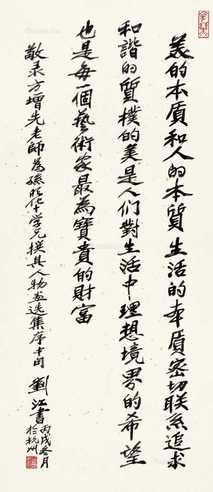 美的本质和人的本質生活的本質密切联系追求
和諧的質樸的美是人们對生活中理想境界的希望
也是每一個藝術家最為寶貴的財富
敬录方增先老師為孫
学兄
其人物画选集序中句
劉江書
丙戌冬月
於杭州